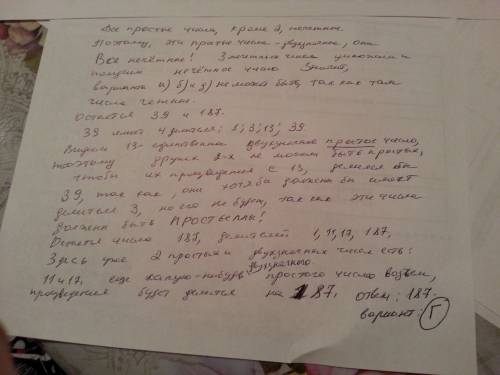 Все простые числа, кроме 2, нечетные.
Поэтому, эти простые числа - двузначные, они
Все нечётные! 3 нечетных числа умножили и
получим нечётное число. Значит,
варианты а) б) и д) не может быть, так как там
числа четные.
Остаётся 39 и 187.
39 имеет 4 делителя: 1; 3; 13; 39.
Видим 13 - единственное двузначное простое число,
поэтому других 2-х не может быть простых,
чтобы их произведение с 13, делился бы
39, так как, они хотя бы должны бы
делиться 3, но его не будет, так как эти числа
должны быть ПРОСТЫМИ!
Остается число 187, делителей 1, 11, 17, 187.
Здесь уже 2 простых двузначных числа есть:
11 и 17. еще какую-нибудь двузначного простого число возьмем,
произведения будет делится на 187. ответ: 187.
вариант: Г